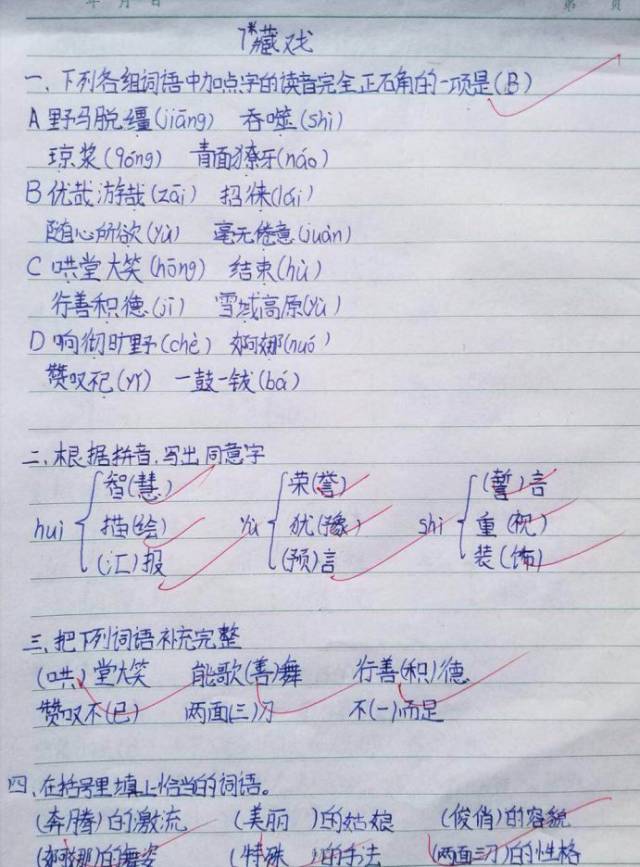 年 月 日 第 页
7*藏戏
一、下列各组词语中加点字的读音完全正确的一项是(B)
A 野马脱缰(jiāng) 吞噬(shì)
琼浆(qóng) 青面獠牙(náo)
B 优哉游哉(zāi) 招徕(lái)
随心所欲(yù) 毫无倦意(juàn)
C 哄堂大笑(hōng) 结束(hù)
行善积德(jī) 雪域高原(yù)
D 响彻旷野(chè) 婀娜(nuó)
赞叹不已(yǐ) 一鼓一钹(bá)
二、根据拼音,写出同意字
智(慧) 荣(誉) (誓)言
hui 描(绘) yù 犹(豫) shì 重(视)
(汇)报 (预)言 装(饰)
三、把下列词语补充完整
(哄)堂大笑 能歌(善)舞 行善(积)德
赞叹不(已) 两面(三)刀 不(一)而足
四、在括号里填上恰当的词语。
(奔腾)的激流 (美丽 )的姑娘 (俊俏)的容貌
(婀娜)的舞姿 (特殊 )的手法 (两面三刀)的性格